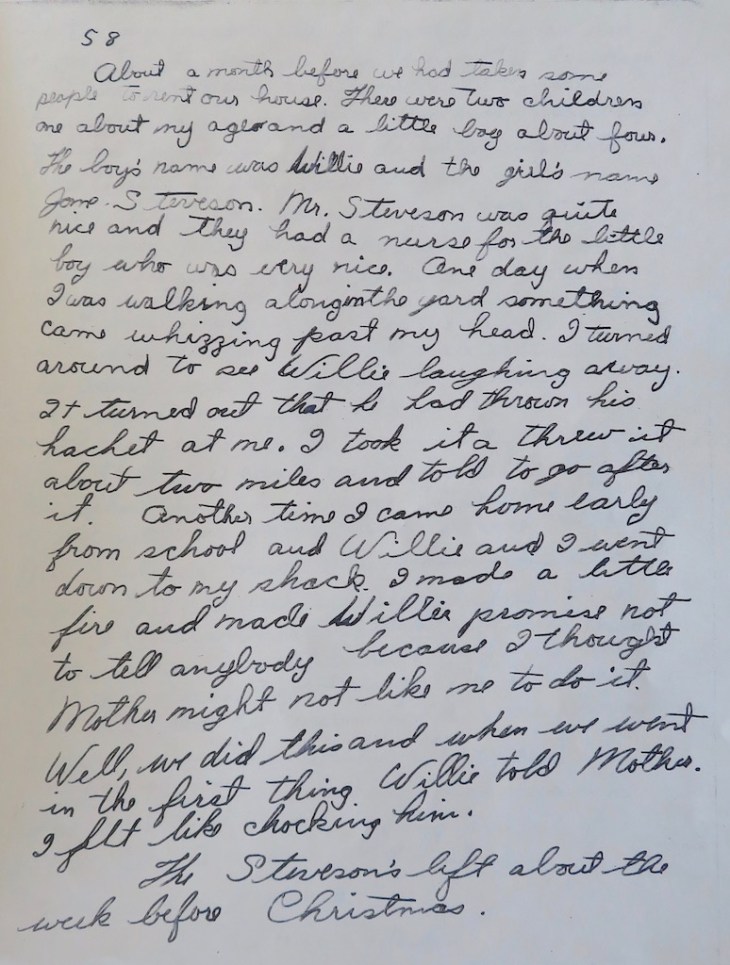 58
About a month before we had taken some
people to rent our house. There were two children
one about my age and a little boy about four.
The boy's name was Willie and the girl's name
Jane Steveson. Mr. Steveson was quite
nice and they had a nurse for the little
boy who was very nice. One day when
I was walking along in the yard something
came whizzing past my head. I turned
around to see Willie laughing away.
It turned out that he had thrown his
hachet at me. I took it a threw it
about two miles and told to go after
it. Another time I came home early
from school and Willie and I went
down to my shack. I made a little
fire and made Willie promise not
to tell anybody because I thought
Mother might not like me to do it.
Well, we did this and when we went
in the first thing Willie told Mother.
I felt like chocking him.
The Steveson's left about the
week before Christmas.